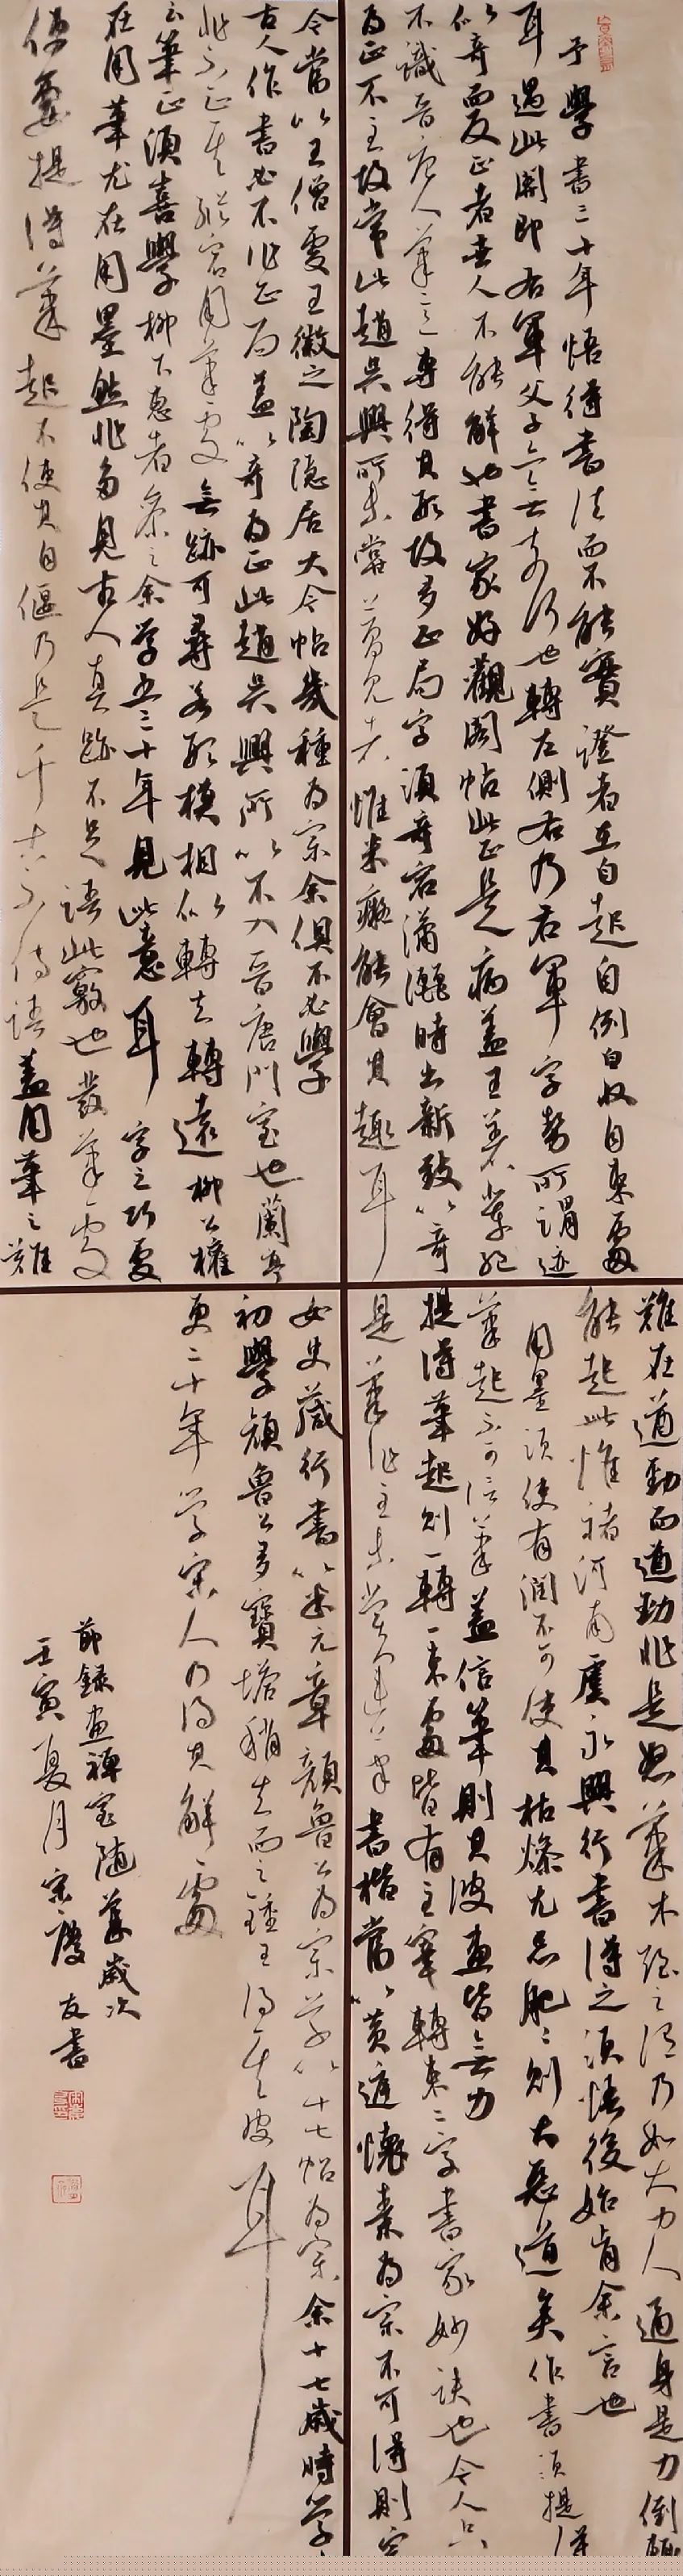 予學書三十年悟得書法而不能實證者在自起自倒自收自束處
耳過此關即右軍父子亦無奈何也轉左側右乃右軍字勢所謂迹
似奇而反正者世人不能解也書家好觀閣帖此正是病蓋王著輩絕
不識晉唐人筆意專得其形故多正局字須奇宕瀟灑時出新致以奇
為正不主故常此趙吳興所未嘗夢見者惟米癡能會其趣耳
今當以王僧虔王徽之陶隱居大令帖幾種為宗余俱不必學
古人作書必不作正局蓋以奇為正此趙吳興所以不入晉唐門室也蘭亭
非不正其縱宕用筆處無跡可尋若形模相似轉去轉遠柳公權
云筆正須善學柳下惠者參之余学书三十年見此意耳 字之巧處
在用筆尤在用墨然非多見古人真跡不足語此竅也發筆處
便要提得筆起不使其自偃乃是千古不傳語蓋用筆之難
難在遒勁而遒勁非是怒筆木強之謂乃如大力人通身是力倒輒
能起此惟褚河南虞永興行書得之須悟後始肯余言也
用墨須使有潤不可使其枯燥尤忌肥肥則大惡道矣作書須提得
筆起不可信筆蓋信筆則其波畫皆無力
提得筆起則一轉一束處皆有主宰轉束二字書家妙訣也今人只
是筆作主未嘗運筆書楷當以黃庭懷素為宗不可得則宗
女史箴行書以米元章顏魯公為宗草以十七帖為宗余十七歲時學
初學顏魯公多寶塔稍去而之鍾王得其皮耳
更二十年学宋人乃得其解處
節錄畫禪室隨筆歲次
壬寅夏月宗慶友書